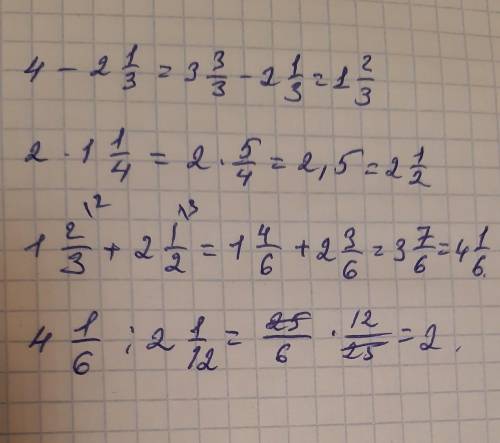 4 - 2 1/3 = 3 3/3 - 2 1/3 = 1 2/3
2 · 1 1/4 = 2 · 5/4 = 2,5 = 2 1/2
1 2/3 \2 + 2 1/2 \3 = 1 4/6 + 2 3/6 = 3 7/6 = 4 1/6.
4 1/6 : 2 1/12 = 25/6 · 12/25 = 2.